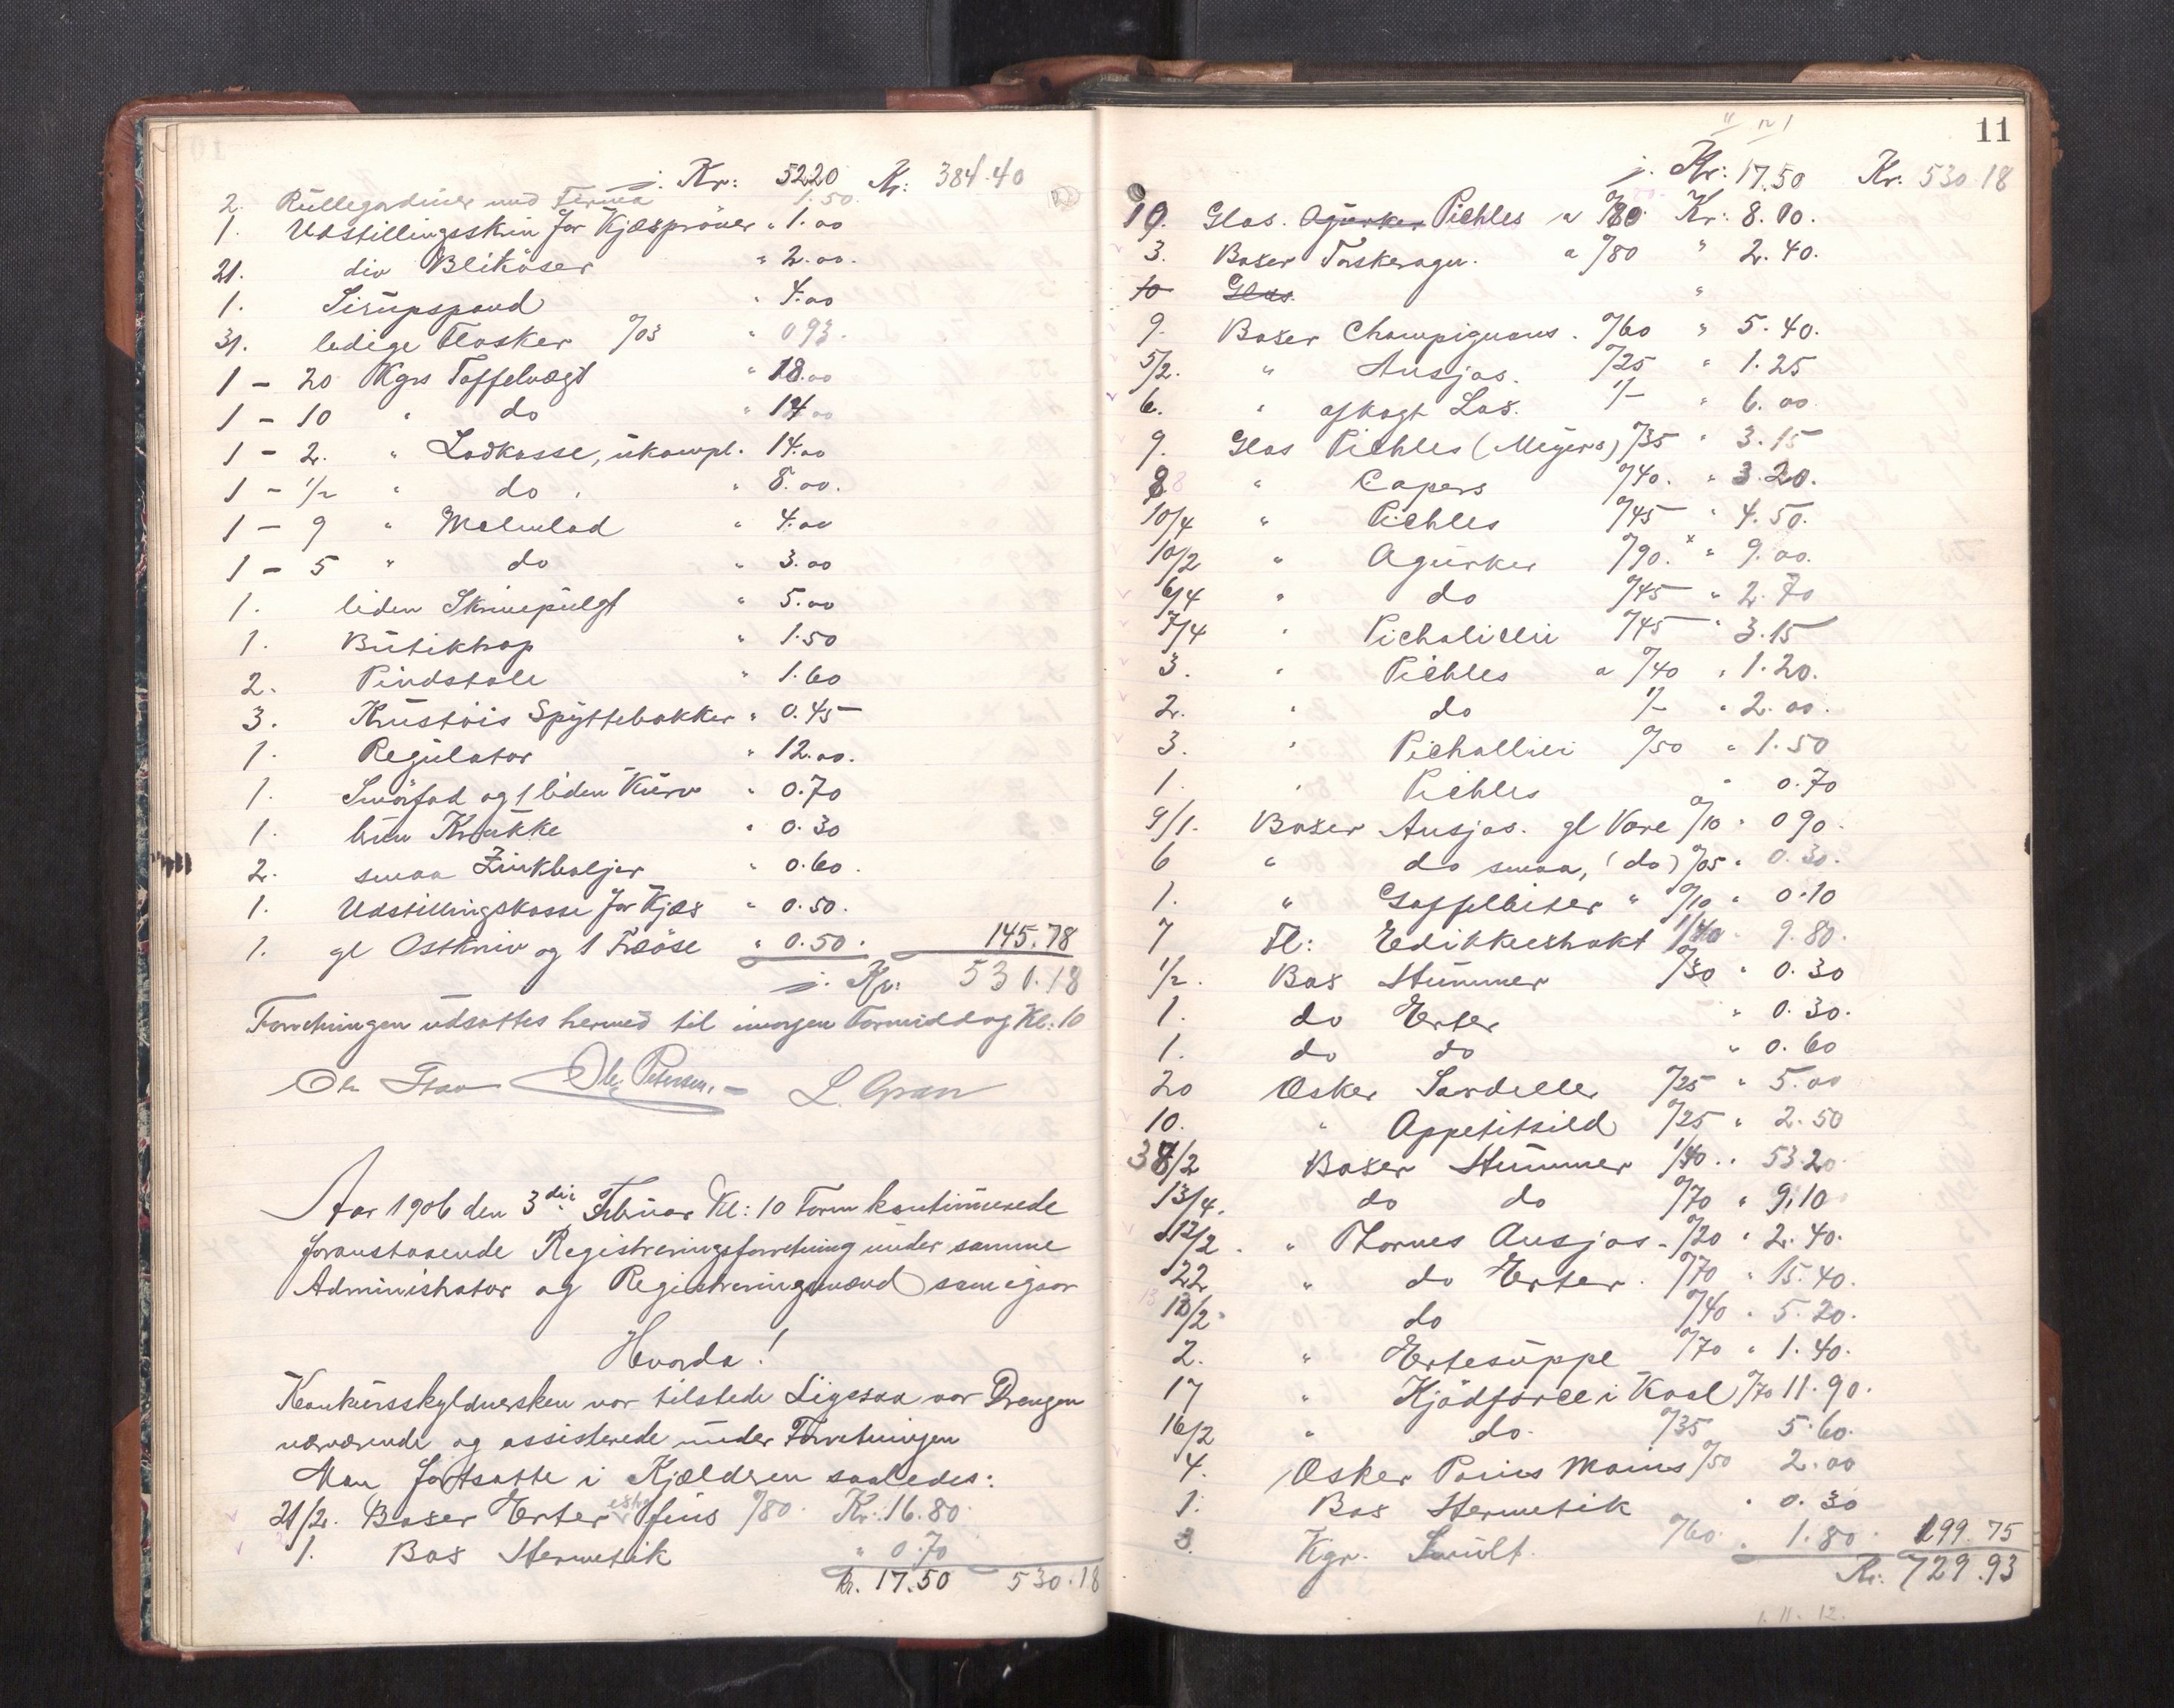 j. Kr: 52.20 Kr: 384.40
2. Rullegardiner med Firma 1.50
1. Udstillingsskrin for Kjæsprøver " 1.00
21. div Blikdåser " 2.00.
1. Sirupspand " 4.00
31. ledige Flasker %03 " 0.93.
1 - 20 Kgrs Taffelvægt " 18.00
1 - 10 " do " 14.00
1 - 2. " Lodkasse, ukompl. 14.00
1 - 1/2 " do . " 8.00.
1 - 9 " Malmlod " 4.00
1 - 5 " do " 3.00
1. liden Skrivepult " 5.00
1. Butiktrap " 1.50
2. Pindstole " 1.60
3. Krustøis Spyttebakker " 0.45
1. Regulator " 12.00.
1. Smørfad og 1 liden Kurv " 0.70
1. liden Krukke " 0.30
2. smaa Zinkbaljer " 0.60.
1. Udstillingskasse for Kjæs " 0.50.
1. gl Ostkniv og 1 Træøse " 0.50. 145.78
j. Kr: 530.18
Forretningen udsattes hermed til imorgen Formiddag Kl: 10
Ole Petersen. L. Gran
Aar 1906 den 3die Februar Kl: 10 Form kontinuerede
foranstaaende Registreringsforretning under samme
Administrator og Registreringsmænd som igaar
Hvorda!
Konkursskyldnersken var tilstede Ligesaa var Drengen
nærværende og assisterede under Forretningen
Man fortsatte i Kjælderen saaledes:
21/2. Boxer Erter extra fins %80. Kr: 16.80.
1. Box Hermetik " 0.70
Kr. 17.50 530.18
11
j. Kr: 17.50 Kr: 530.18
10. Glas. Agurker Pickles a %80 Kr: 8.00.
3. Boxer Fiskeragu. a %80 " 2.40.
10 Glas. "
9. Boxer Champignons. %60 " 5.40.
5/2. " Ansjos. %25 " 1.25
6. " afkogt Lax. 1/- " 6.00
9. Glas Pickles (Meyers) %35 " 3.15
8 " Capers %40. " 3.20.
10/4 " Pickles %45 " 4.50.
10/2 " Agurker %90. " 9.00.
6/4 " do %45 " 2.70
7/4 " Picholilli %45 " 3.15
3. " Pickles a %40 " 1.20.
2. " do 1/- " 2.00.
3. " Picholilli %50 " 1.50
1. " Pickles " 0.70
9/1. Boxer Ansjos. gl Vare %10 " 0.90.
6 " do smaa, (do) %05 " 0.30.
1. " Gaffelbiter " %10 " 0.10
7 Fl: Edikkextrakt 1/40 " 9.80.
1/2. Box Hummer %30 " 0.30
1. do Erter " 0.30.
1. do do " 0.60
20 Æsker Sardeller %25 " 5.00
10. " Appetitsild %25 " 2.50
38/2 Boxer Hummer 1/40 " 53.20
13/4. do do %70 " 9.10
12/2. " Thornes Ansjos. %20 " 2.40.
22 " do Erter. %70 " 15.40.
13/2. do %40 " 5.20.
2. " Ertesuppe %70 " 1.40.
17 " Kjødfarce i Kaal %70 11.90.
16/2 " do. %35 5.60.
4. Æsker Poris Mauis %50 2.00
1. Box Hermetik " 0.30
3. Kgr. Smult. %60. " 1.80. 199.75
Kr. 729.93
1. 11. 12.